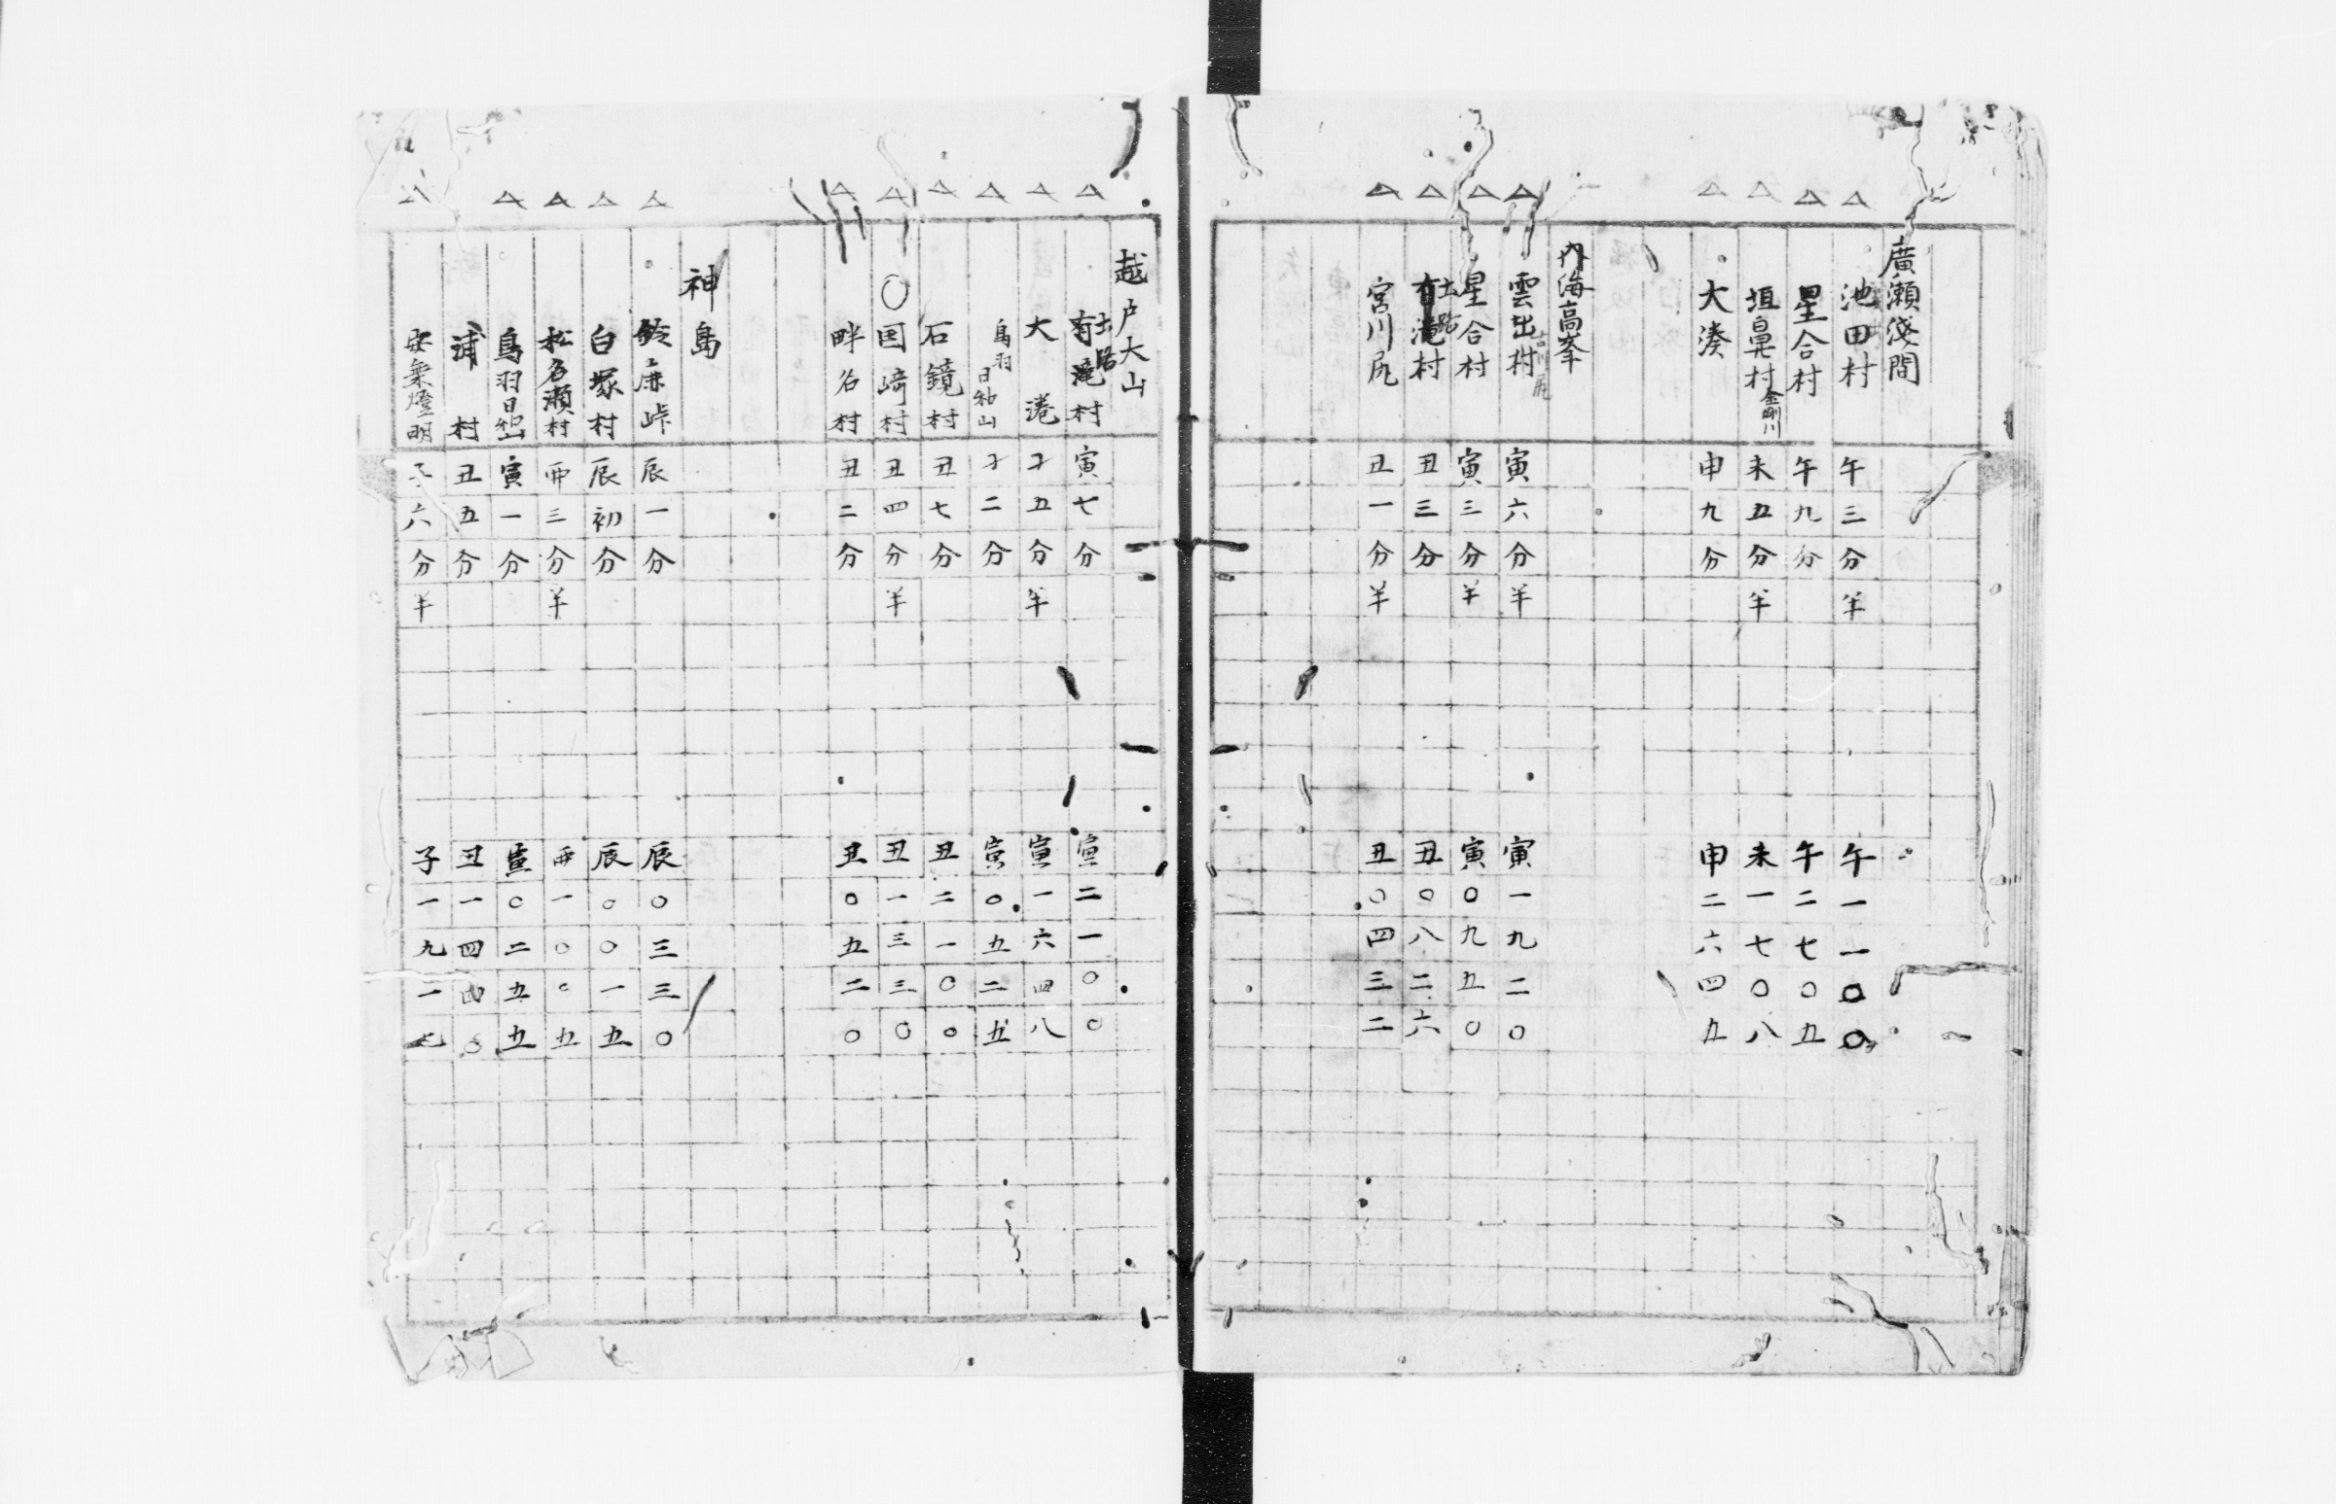 廣瀬淺間
池田村 午三分半 午一一〇〇
星合村 午九分 午二七〇五
垣鼻村 金剛川 未五分半 未一七〇八
大湊 申九分 申二六四五
丹海高峯
雲出村 寅六分半 寅一九二〇
星合村 寅三分半 寅〇九五〇
有滝村 土路 丑三分 丑〇八二六
宮川尻 丑一分半 丑〇四三二
越戸大山
有滝村 土路 寅七分 寅二一〇〇
大港 才五分半 寅一六四八
鳥羽日和山 才二分 寅〇五二五
石鏡村 丑七分 丑二一〇〇
〇国崎村 丑四分半 丑一三三〇
畔名村 丑二分 丑〇五二〇
神島
鈴鹿峠 辰一分 辰〇三三〇
白塚村 辰初分 辰〇〇一五
松名瀬村 卯三分半 卯一〇〇五
鳥羽日和山 寅一分 寅〇二五五
浦村 丑五分 丑一四四〇
安乗燈明 子六分半 子一九一七